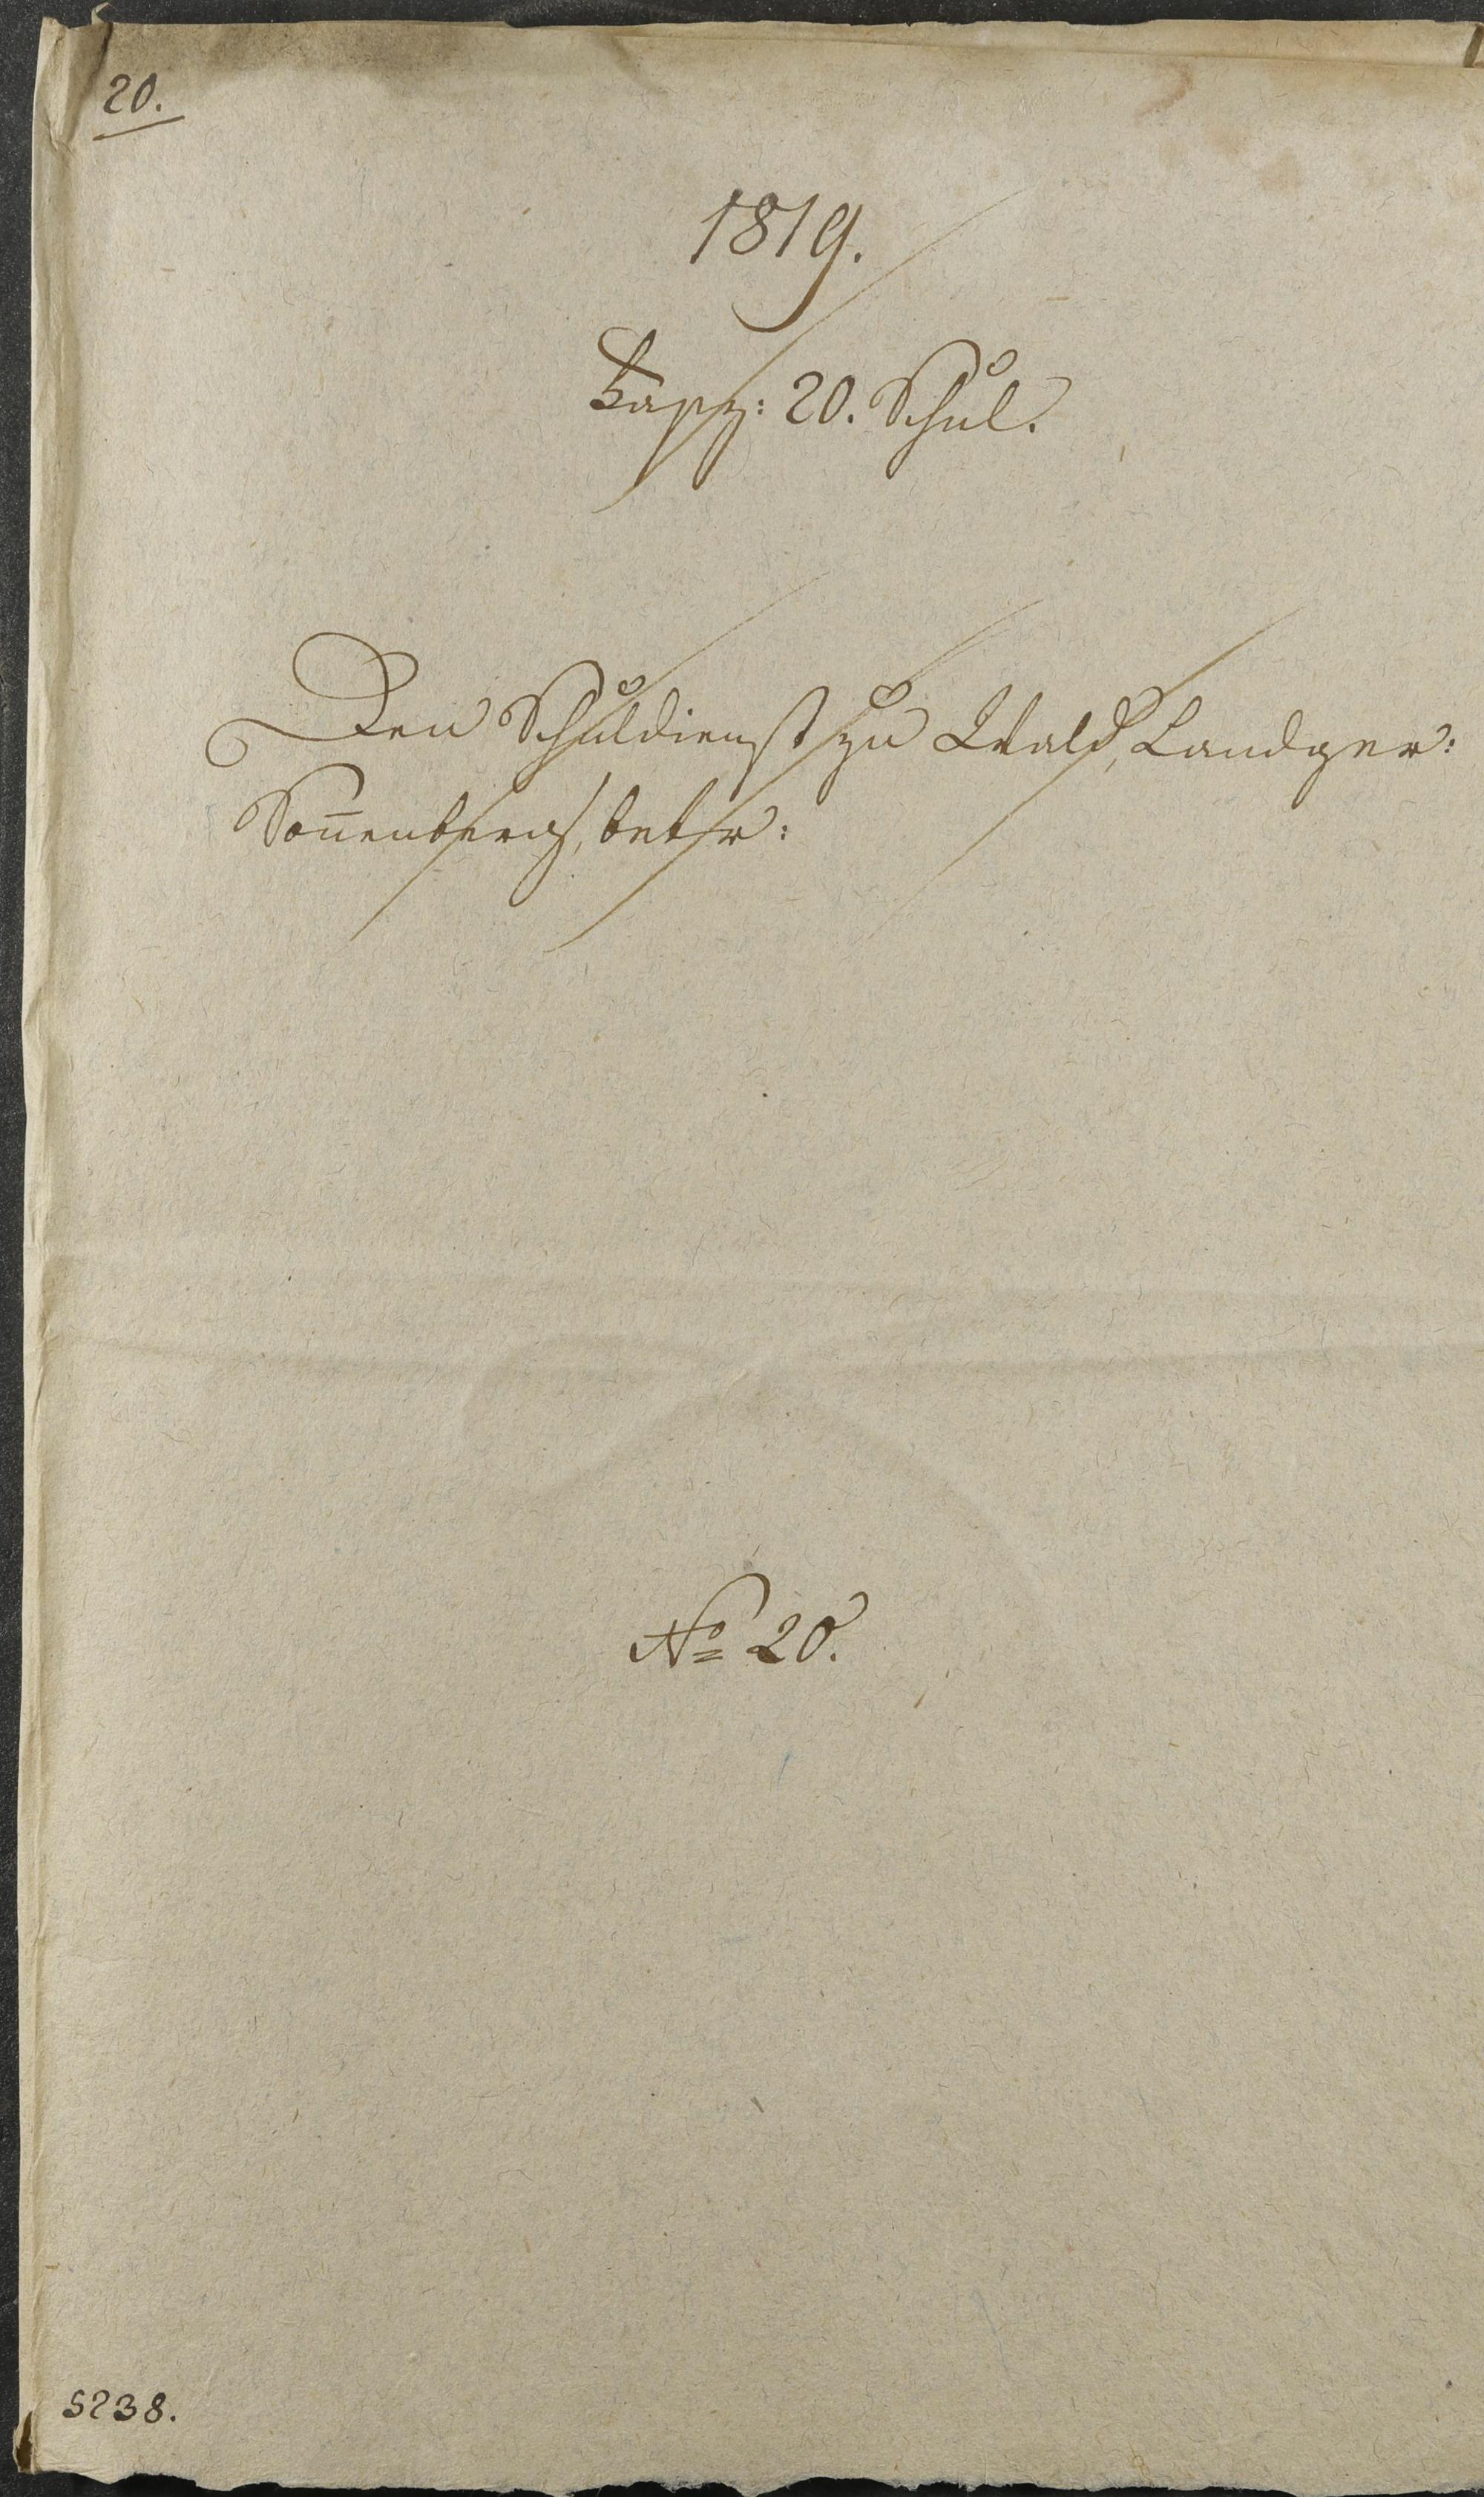 20.
1819.
Fasz: 20. Schul.
Den Schuldienst zu Wald, Landger:
Soñenberg, betr:
No 20.
5238.